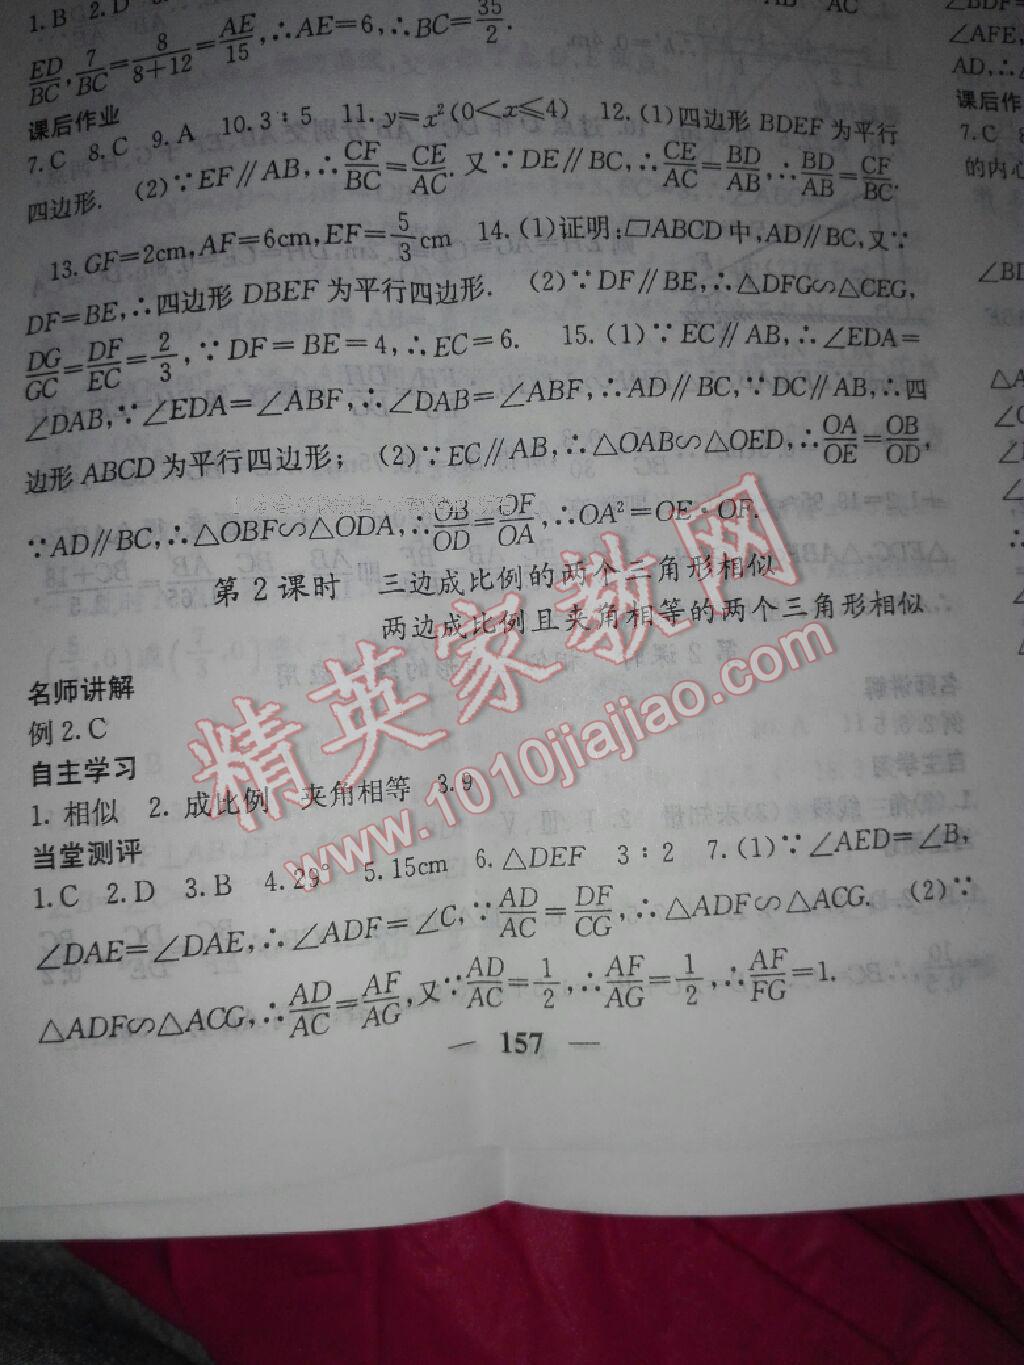 1. B 2. D
ED/BC, 7/BC = 8/(8+12) = AE/15, ∴AE=6, ∴BC=35/2.
课后作业
7. C 8. C 9. A 10. 3∶5 11. y=x²(0<x≤4) 12. (1)四边形 BDEF 为平行
四边形. (2)∵EF∥AB, ∴CF/BC=CE/AC. 又∵DE∥BC, ∴CE/AC=BD/AB, ∴BD/AB=CF/BC.
13. GF=2cm, AF=6cm, EF=5/3cm 14. (1)证明:▱ABCD 中, AD∥BC, 又∵
DF=BE, ∴四边形 DBEF 为平行四边形. (2)∵DF∥BE, ∴△DFG∽△CEG,
DG/GC=DF/EC=2/3, ∵DF=BE=4, ∴EC=6. 15. (1)∵EC∥AB, ∴∠EDA=
∠DAB, ∵∠EDA=∠ABF, ∴∠DAB=∠ABF, ∴AD∥BC, ∵DC∥AB, ∴四
边形 ABCD 为平行四边形; (2)∵EC∥AB, ∴△OAB∽△OED, ∴OA/OE=OB/OD,
∵AD∥BC, ∴△OBF∽△ODA, ∴OB/OD=OF/OA, ∴OA²=OE·OF.
第 2 课时 三边成比例的两个三角形相似
两边成比例且夹角相等的两个三角形相似
名师讲解
例 2. C
自主学习
1. 相似 2. 成比例 夹角相等 3. 9
当堂测评
1. C 2. D 3. B 4. 29° 5. 15cm 6. △DEF 3∶2 7. (1)∵∠AED=∠B,
∠DAE=∠DAE, ∴∠ADF=∠C, ∵AD/AC=DF/CG, ∴△ADF∽△ACG. (2)∵
△ADF∽△ACG, ∴AD/AC=AF/AG, 又∵AD/AC=1/2, ∴AF/AG=1/2, ∴AF/FG=1.
— 157 —
精英家教网
www.1010jiajiao.com
∠AFE,
AD, ∴
课后作
7. C
的内心
∠BD